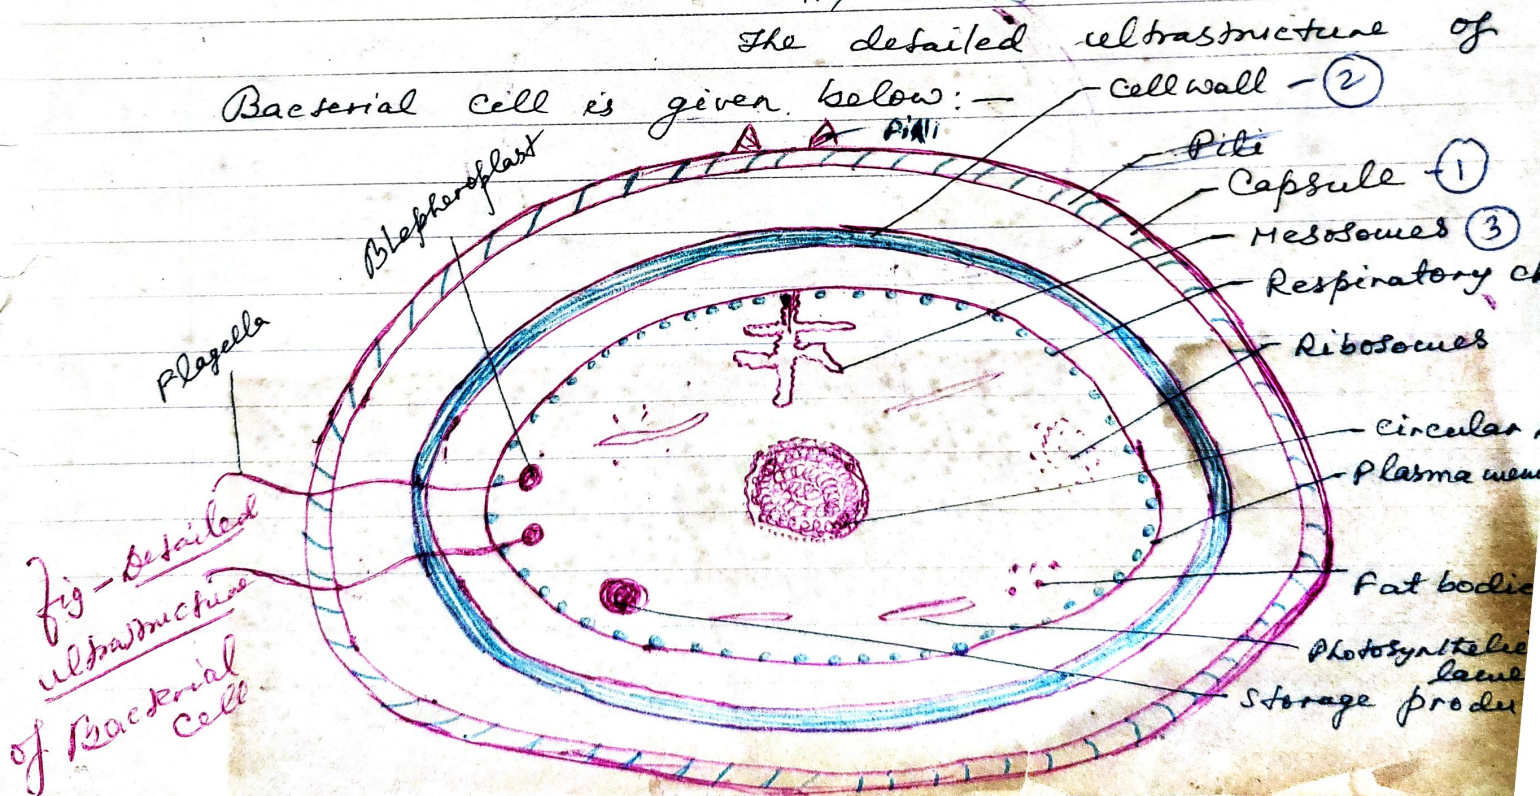 The detailed ultrastructure of
Bacterial cell is given below:—
Cell wall - ②
Pili
Pili
Capsule - ①
Mesosomes ③
Respiratory ch
Ribosomes
Circular
Plasma mem
Fat bodie
Photosynthetic
lame
Storage produ
Blepheroplast
Flagella
Fig - Detailed
ultrastructure
of Bacterial
cell